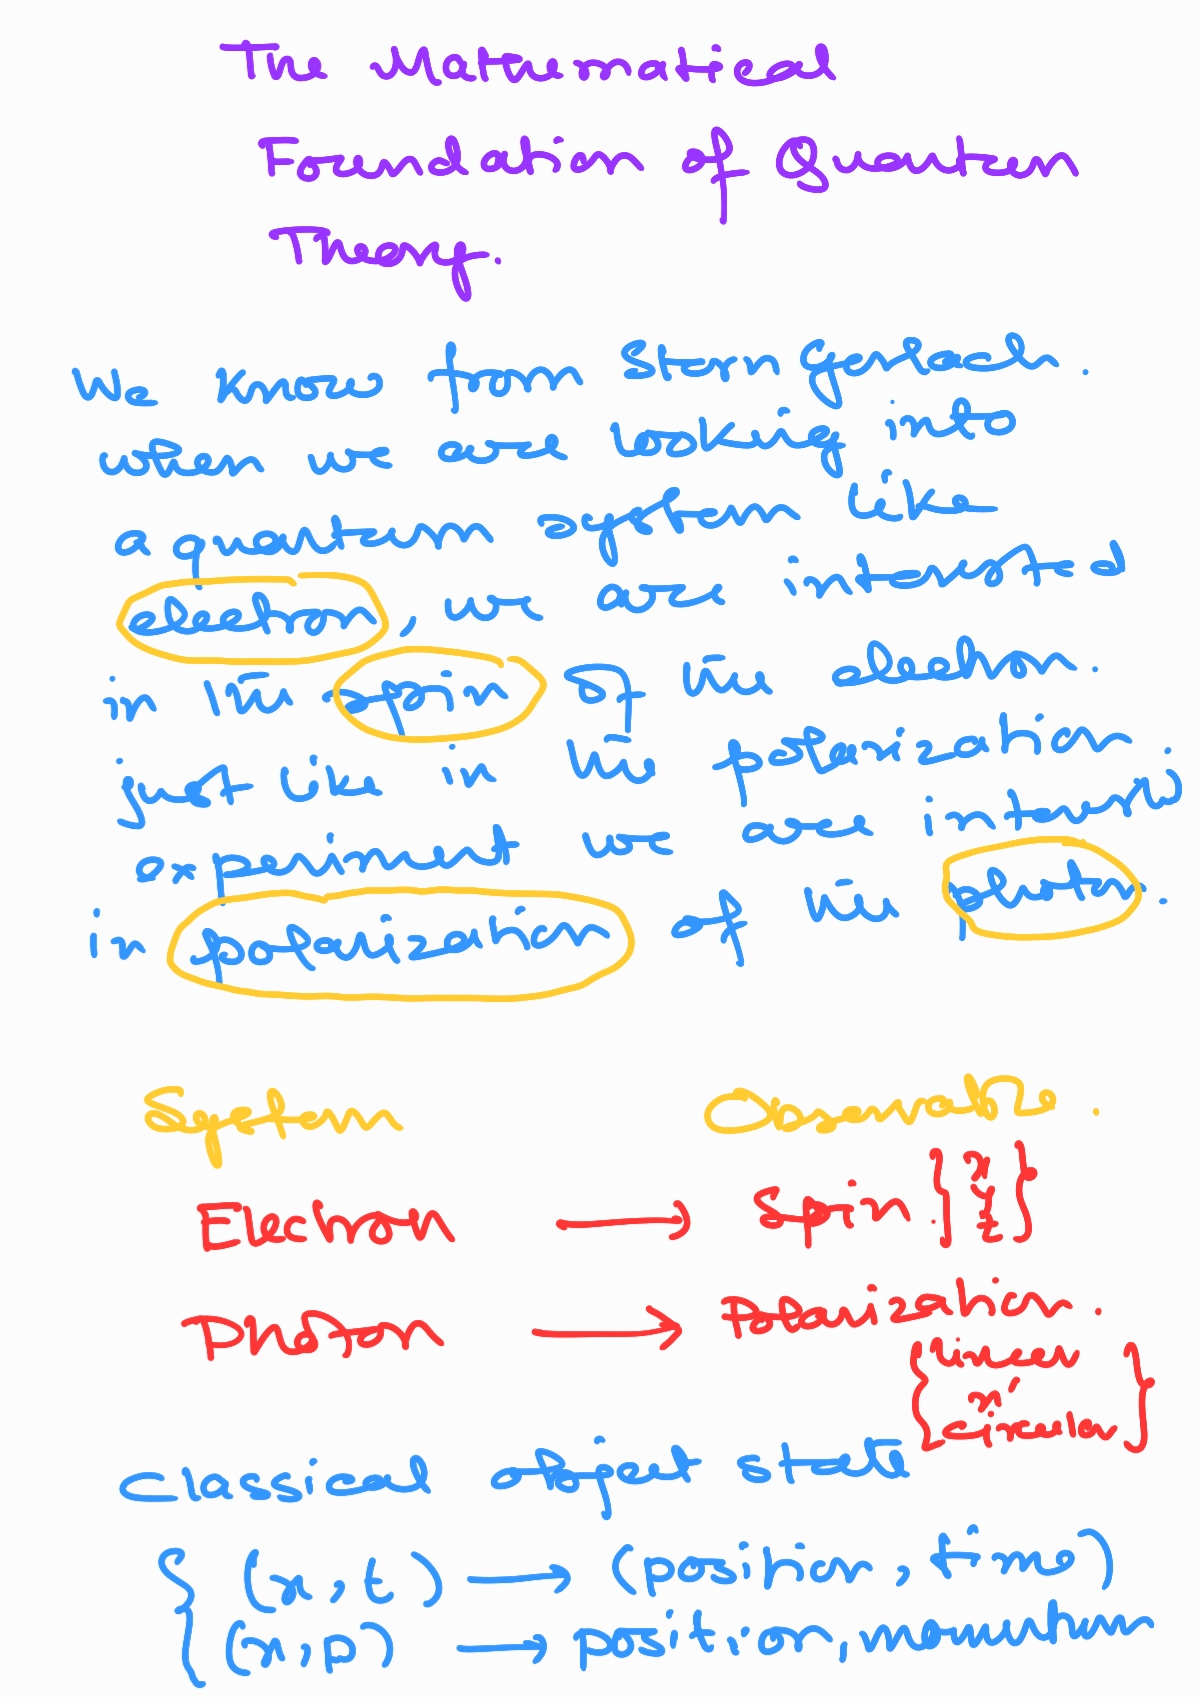 The Mathematical
Foundation of Quantum
Theory.
We know from Stern Gerlach.
when we are looking into
a quantum system like
electron, we are interested
in the spin of the electron.
just like in the polarization.
experiment we are
in polarization of the photon.
System Observable.
Electron → Spin. { x
y
z }
Photon → Polarization.
{ linear
x'
circular }
Classical object state
{ (x, t) → (position, time)
(x, p) → position, momentum